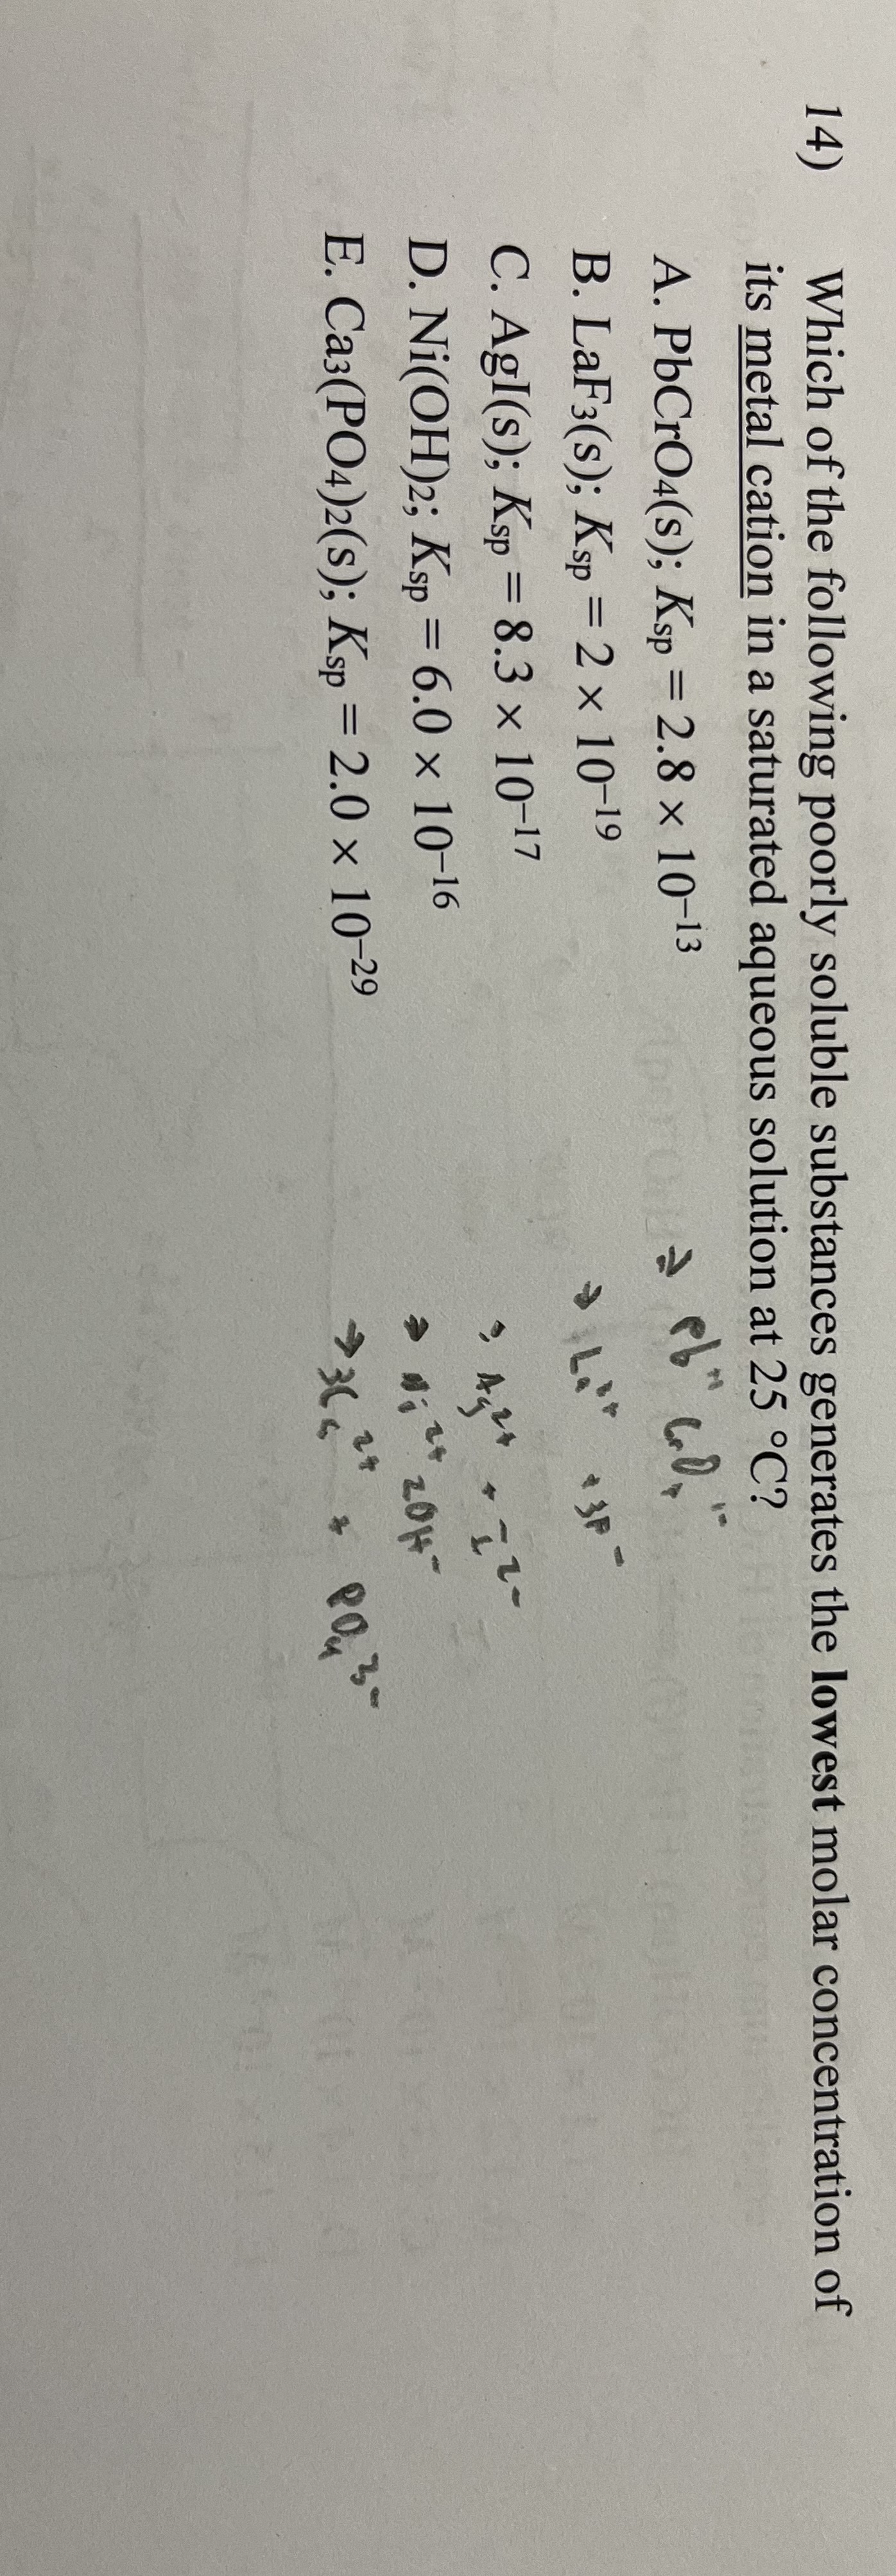 14) Which of the following poorly soluble substances generates the lowest molar concentration of
its metal cation in a saturated aqueous solution at 25 °C?
A. PbCrO4(s); Ksp = 2.8 × 10–13
B. LaF3(s); Ksp = 2 × 10–19
C. AgI(s); Ksp = 8.3 × 10–17
D. Ni(OH)2; Ksp = 6.0 × 10–16
E. Ca3(PO4)2(s); Ksp = 2.0 × 10–29
→ + 3F-
→ Ag2+ + I2-
→ Ni2+ 2OH-
→ 3Ca2+ + PO43-